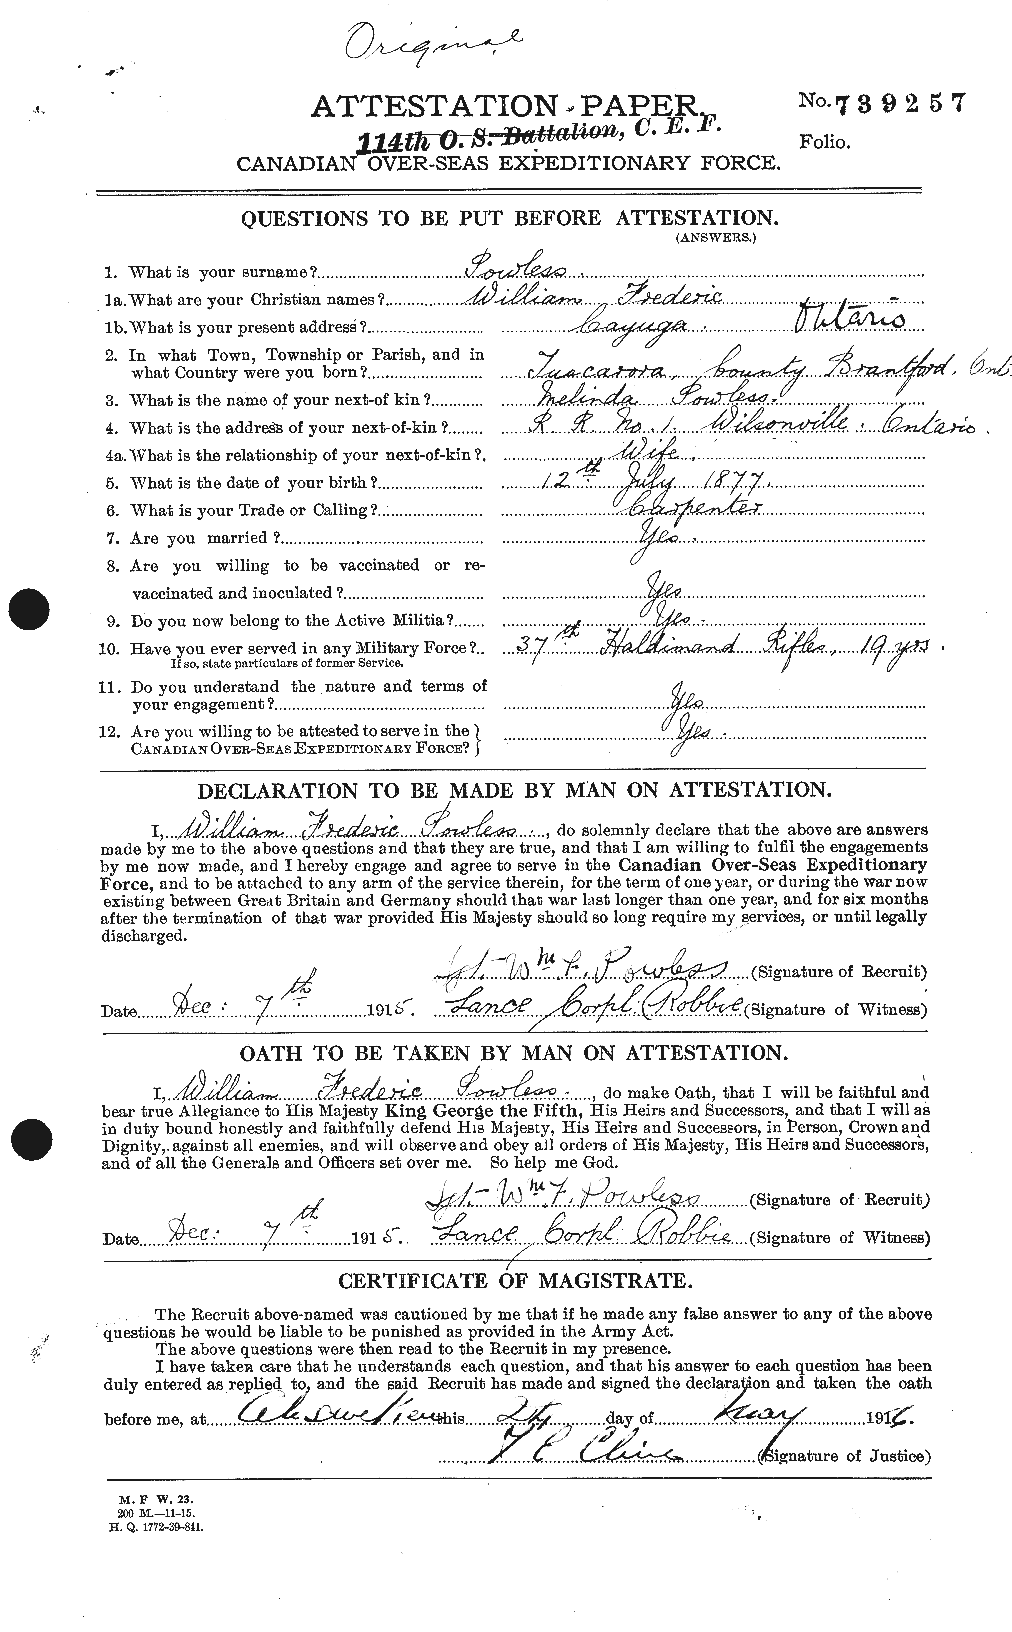 Original
ATTESTATION PAPER. No. 739257
114th O. S. Battalion, C. E. F.
Folio.
CANADIAN OVER-SEAS EXPEDITIONARY FORCE.
QUESTIONS TO BE PUT BEFORE ATTESTATION.
(ANSWERS.)
1. What is your surname? Powless.
1a. What are your Christian names? William Frederic
1b. What is your present address? Cayuga. Ontario
2. In what Town, Township or Parish, and in
what Country were you born? Tuscarora, County Brantford. Ont.
3. What is the name of your next-of kin? Melinda Powless.
4. What is the address of your next-of-kin? R. R. No. 1. Wilsonville. Ontario.
4a. What is the relationship of your next-of-kin? Wife.
5. What is the date of your birth? 12th July 1877.
6. What is your Trade or Calling? Carpenter
7. Are you married? Yes.
8. Are you willing to be vaccinated or re-
vaccinated and inoculated? Yes
9. Do you now belong to the Active Militia? Yes.
10. Have you ever served in any Military Force? 37th Haldimand Rifles, 19 yrs.
If so, state particulars of former Service.
11. Do you understand the nature and terms of
your engagement? Yes
12. Are you willing to be attested to serve in the
CANADIAN OVER-SEAS EXPEDITIONARY FORCE? Yes.
DECLARATION TO BE MADE BY MAN ON ATTESTATION.
I, William Frederic Powless, do solemnly declare that the above are answers
made by me to the above questions and that they are true, and that I am willing to fulfil the engagements
by me now made, and I hereby engage and agree to serve in the Canadian Over-Seas Expeditionary
Force, and to be attached to any arm of the service therein, for the term of one year, or during the war now
existing between Great Britain and Germany should that war last longer than one year, and for six months
after the termination of that war provided His Majesty should so long require my services, or until legally
discharged.
Sgt. Wm F. Powless (Signature of Recruit)
Date Dec: 7th 1915. Lance Corpl. Robbie (Signature of Witness)
OATH TO BE TAKEN BY MAN ON ATTESTATION.
I, William Frederic Powless., do make Oath, that I will be faithful and
bear true Allegiance to His Majesty King George the Fifth, His Heirs and Successors, and that I will as
in duty bound honestly and faithfully defend His Majesty, His Heirs and Successors, in Person, Crown and
Dignity, against all enemies, and will observe and obey all orders of His Majesty, His Heirs and Successors,
and of all the Generals and Officers set over me. So help me God.
Sgt. Wm F. Powless (Signature of Recruit)
Date Dec: 7th 1915. Lance Corpl Robbie (Signature of Witness)
CERTIFICATE OF MAGISTRATE.
The Recruit above-named was cautioned by me that if he made any false answer to any of the above
questions he would be liable to be punished as provided in the Army Act.
The above questions were then read to the Recruit in my presence.
I have taken care that he understands each question, and that his answer to each question has been
duly entered as replied to, and the said Recruit has made and signed the declaration and taken the oath
before me, at Ohsweken this day of May 1916.
(Signature of Justice)
M. F. W. 23.
200 M.—11-15.
H. Q. 1772-39-841.